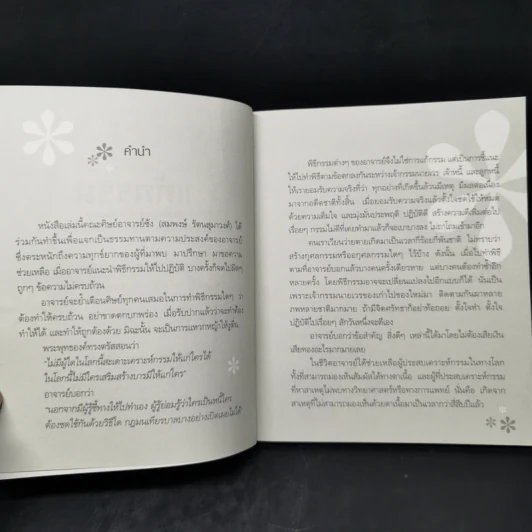 คำนำ
หนังสือเล่มนี้คณะศิษย์อาจารย์ซ้ง (สมพงษ์ รัตนสุมาวงศ์) ได้
ร่วมกันทำขึ้นเพื่อแจกเป็นธรรมทานตามความประสงค์ของอาจารย์
ซึ่งตระหนักถึงความทุกข์ยากของผู้ที่มาพบ มาปรึกษา มาขอความ
ช่วยเหลือ เมื่ออาจารย์แนะนำพิธีกรรมให้ไปปฏิบัติ บางครั้งก็จดไปผิดๆ
ถูกๆ ข้อความไม่ครบถ้วน
อาจารย์จะย้ำเตือนศิษย์ทุกคนเสมอในการทำพิธีกรรมใดๆ ว่า
ต้องทำให้ครบถ้วน อย่าขาดตกบกพร่อง เมื่อรับปากแล้วว่าจะทำต้อง
ทำให้ได้ และทำให้ถูกต้องด้วย มิฉะนั้น จะเป็นการแหวกหญ้าให้งูตื่น
พระพุทธองค์ทรงตรัสสอนว่า
"ไม่มีผู้ใดในโลกนี้สะเดาะเคราะห์กรรมให้แก่ใครได้
ในโลกนี้ไม่มีใครเสริมสร้างบารมีให้แก่ใคร"
อาจารย์บอกว่า
"นอกจากมีผู้รู้ชี้ทางให้ไปทำเอง ผู้รู้ย่อมรู้ว่าใครเป็นหนี้ใคร
ต้องชดใช้กันด้วยวิธีใด กฎมนเทียรบาลบางอย่างเปิดเผยไม่ได้
พิธีกรรมต่างๆ ของอาจารย์จึงไม่ใช่การแก้กรรม แต่เป็นการชี้แนะ
ให้ไปทำพิธีตามข้อตกลงกันระหว่างเจ้ากรรมนายเวร เจ้าหนี้ และลูกหนี้
ให้เรายอมรับความจริงที่ว่า ทุกอย่างที่เกิดขึ้นล้วนมีเหตุ มีผลต่อเนื่อง
มาจากอดีตชาติทั้งสิ้น เมื่อยอมรับความจริงแล้วตั้งใจชดใช้ให้หมด
ด้วยความเต็มใจ และมุ่งมั่นประพฤติ ปฏิบัติดี สร้างความดีเพิ่มต่อไป
เรื่อยๆ กรรมไม่ดีที่เคยทำมาแล้วก็จะเบาบางลง
คนเราเวียนว่ายตายเกิดมาเป็นเวลากี่ร้อยกี่พันชาติ ไม่ทราบว่า
สร้างกุศลกรรมหรืออกุศลกรรมใดๆ ไว้บ้าง ดังนั้น เมื่อไปทำพิธี
ตามที่อาจารย์บอกแล้วบางคนครั้งเดียวหาย แต่บางคนต้องทำซ้ำอีก
หลายครั้ง โดยพิธีกรรมอาจจะเปลี่ยนแปลงไปอีกแบบก็ได้ นั่นเป็น
เพราะเจ้ากรรมนายเวรของเก่าไปของใหม่มา ติดตามกันมาหลาย
ภพหลายชาติมากมาย ถ้ามีจิตศรัทธาก็อย่าท้อถอย ตั้งใจทำ ตั้งใจ
ปฏิบัติไปเรื่อยๆ สักวันหนึ่งจะดีเอง
อาจารย์บอกว่าข้อสำคัญ สิ่งดีๆ เหล่านี้ได้มาโดยไม่ต้องเสียเงิน
เสียทองอะไรมากมายเลย
ในชีวิตอาจารย์ได้ช่วยเหลือผู้ประสบเคราะห์กรรมในทางโลก
ทั้งที่สามารถมองเห็นสัมผัสได้ทางตาเนื้อ และผู้ที่ประสบเคราะห์กรรม
ที่หาสาเหตุไม่พบทางวิทยาศาสตร์หรือทางการแพทย์ นั่นคือ เกิดจาก
สาเหตุที่ไม่สามารถมองเห็นด้วยตาเนื้อมาเป็นเวลากว่าสี่สิบปีแล้ว